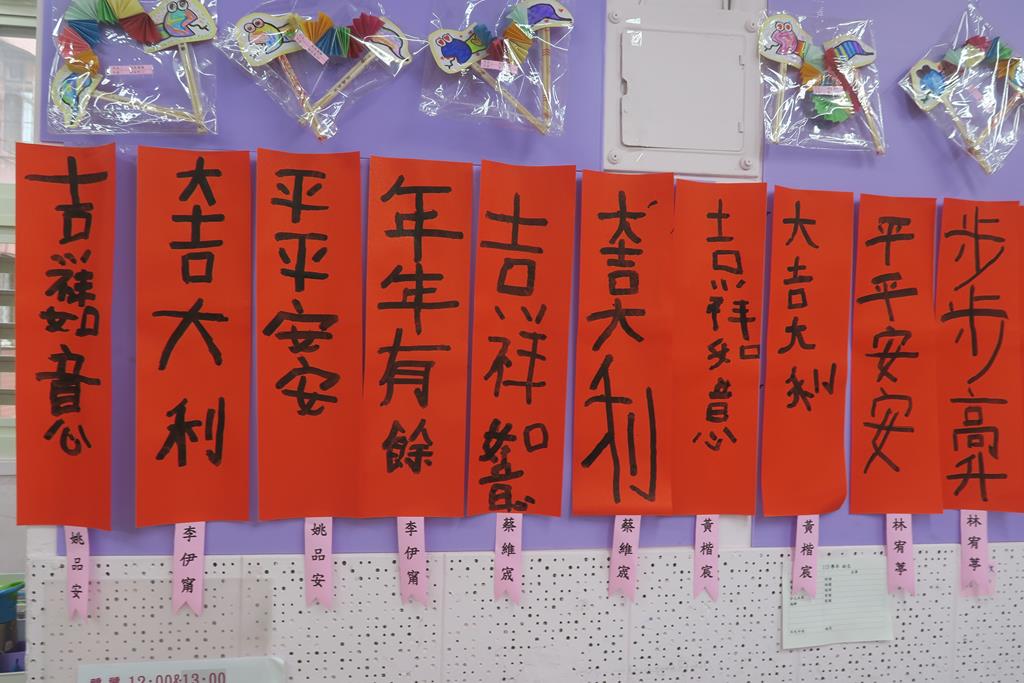 吉祥如意
大吉大利
平平安安
年年有餘
吉祥如意
大吉大利
吉祥如意
大吉大利
平平安安
步步高升
姚品安
李伊甯
姚品安
李伊甯
蔡維宬
蔡維宬
黃楷宸
黃楷宸
林宥葶
林宥葶
12:00&13:00